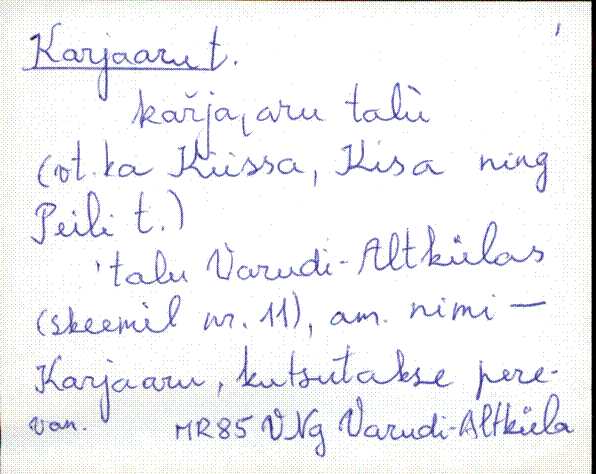 Karjaaru t.
kaŕja˛aru talù
(vt. ka Kiissa, Kisa ning
Peili t.)
'talu Varudi-Altkülas
(skeemil nr. 11), am. nimi –
Karjaaru, kutsutakse pere-
van. MR85 VNg Varudi-Altküla